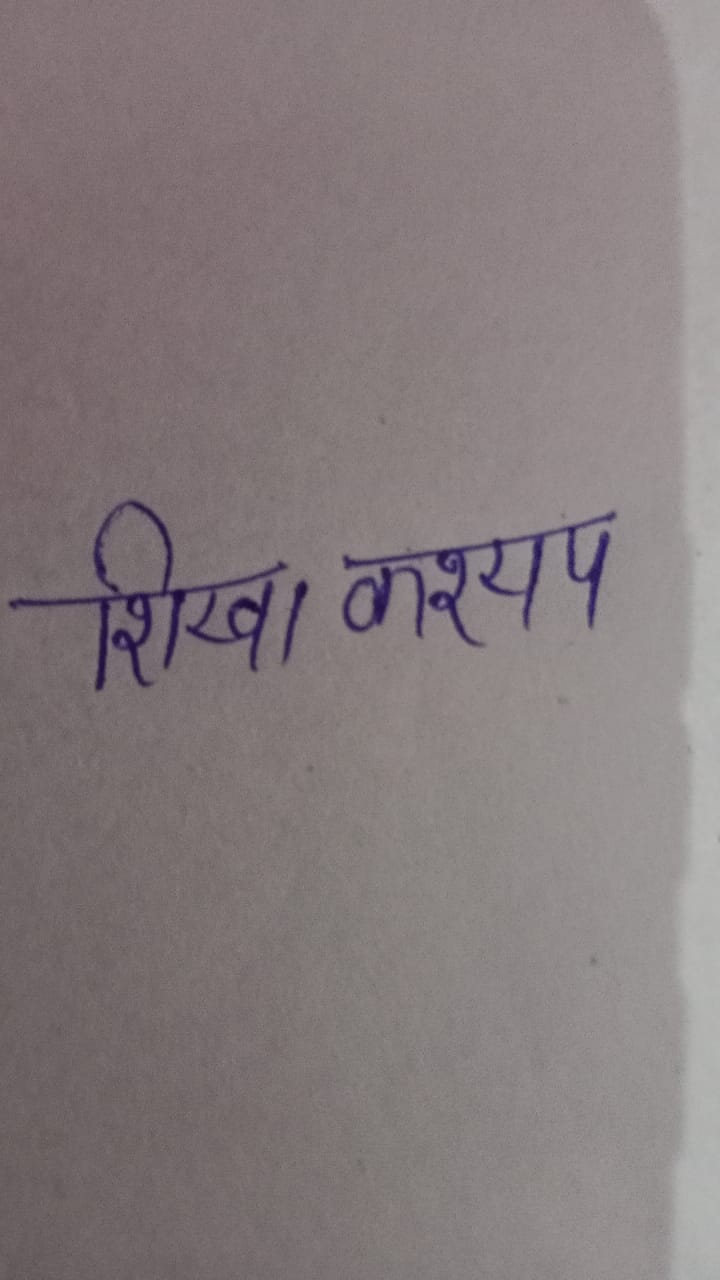 शिखा कश्यप